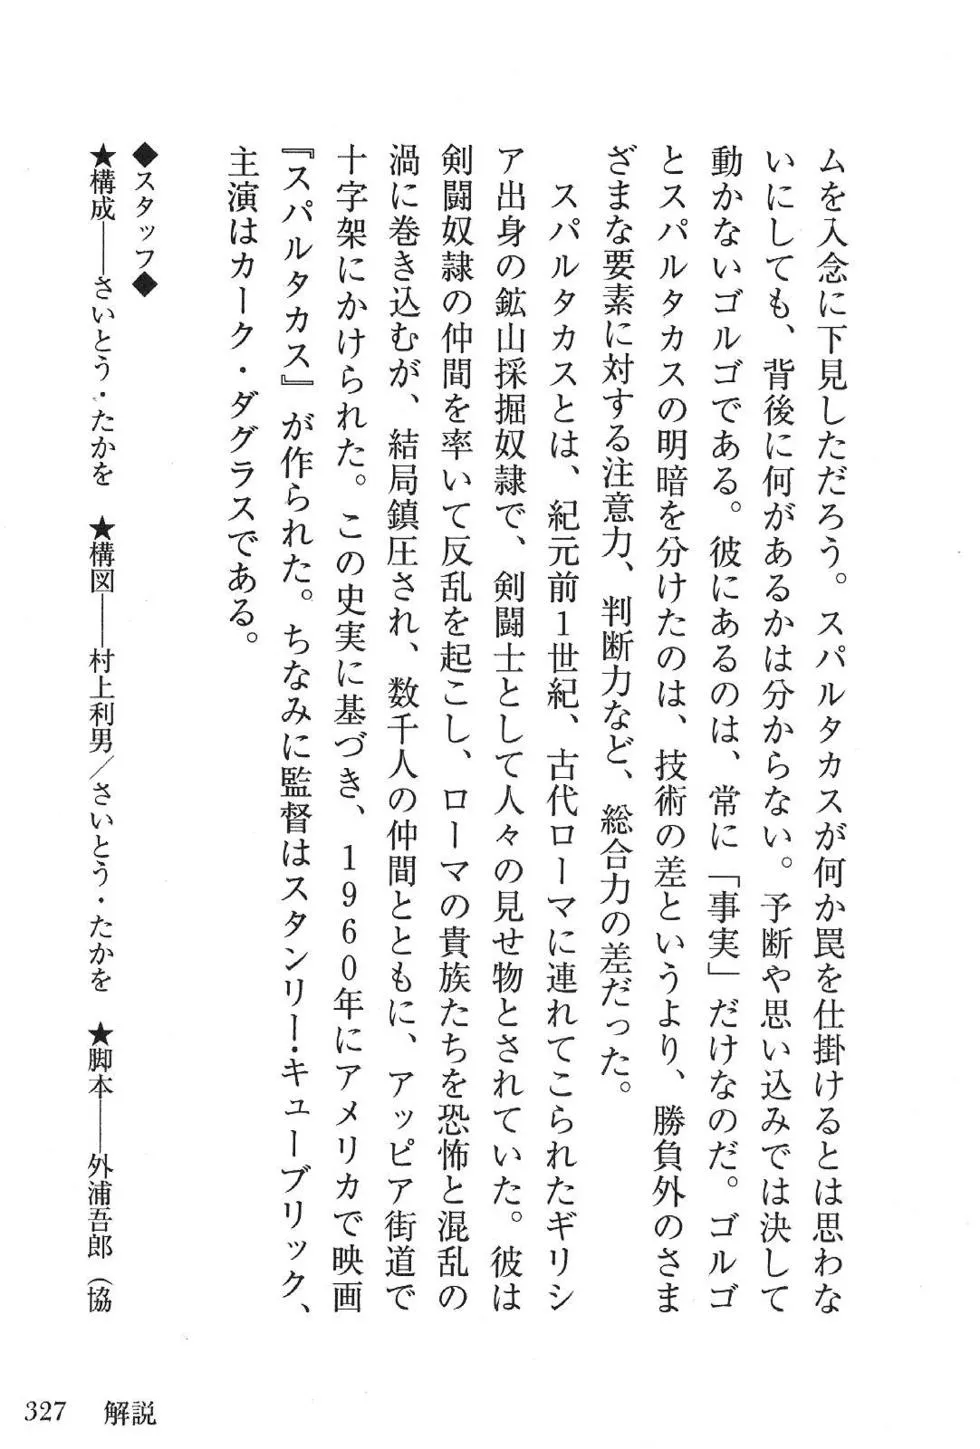 ムを入念に下見しただろう。スパルタカスが何か罠を仕掛けるとは思わな
いにしても、背後に何があるかは分からない。予断や思い込みでは決して
動かないゴルゴである。彼にあるのは、常に「事実」だけなのだ。ゴルゴ
とスパルタカスの明暗を分けたのは、技術の差というより、勝負外のさま
ざまな要素に対する注意力、判断力など、総合力の差だった。
スパルタカスとは、紀元前1世紀、古代ローマに連れてこられたギリシ
ア出身の鉱山採掘奴隷で、剣闘士として人々の見せ物とされていた。彼は
剣闘奴隷の仲間を率いて反乱を起こし、ローマの貴族たちを恐怖と混乱の
渦に巻き込むが、結局鎮圧され、数千人の仲間とともに、アッピア街道で
十字架にかけられた。この史実に基づき、1960年にアメリカで映画
『スパルタカス』が作られた。ちなみに監督はスタンリー・キューブリック、
主演はカーク・ダグラスである。
◆スタッフ◆
★構成――さいとう・たかを ★構図――村上利男／さいとう・たかを ★脚本――外浦吾郎（協
327 解説